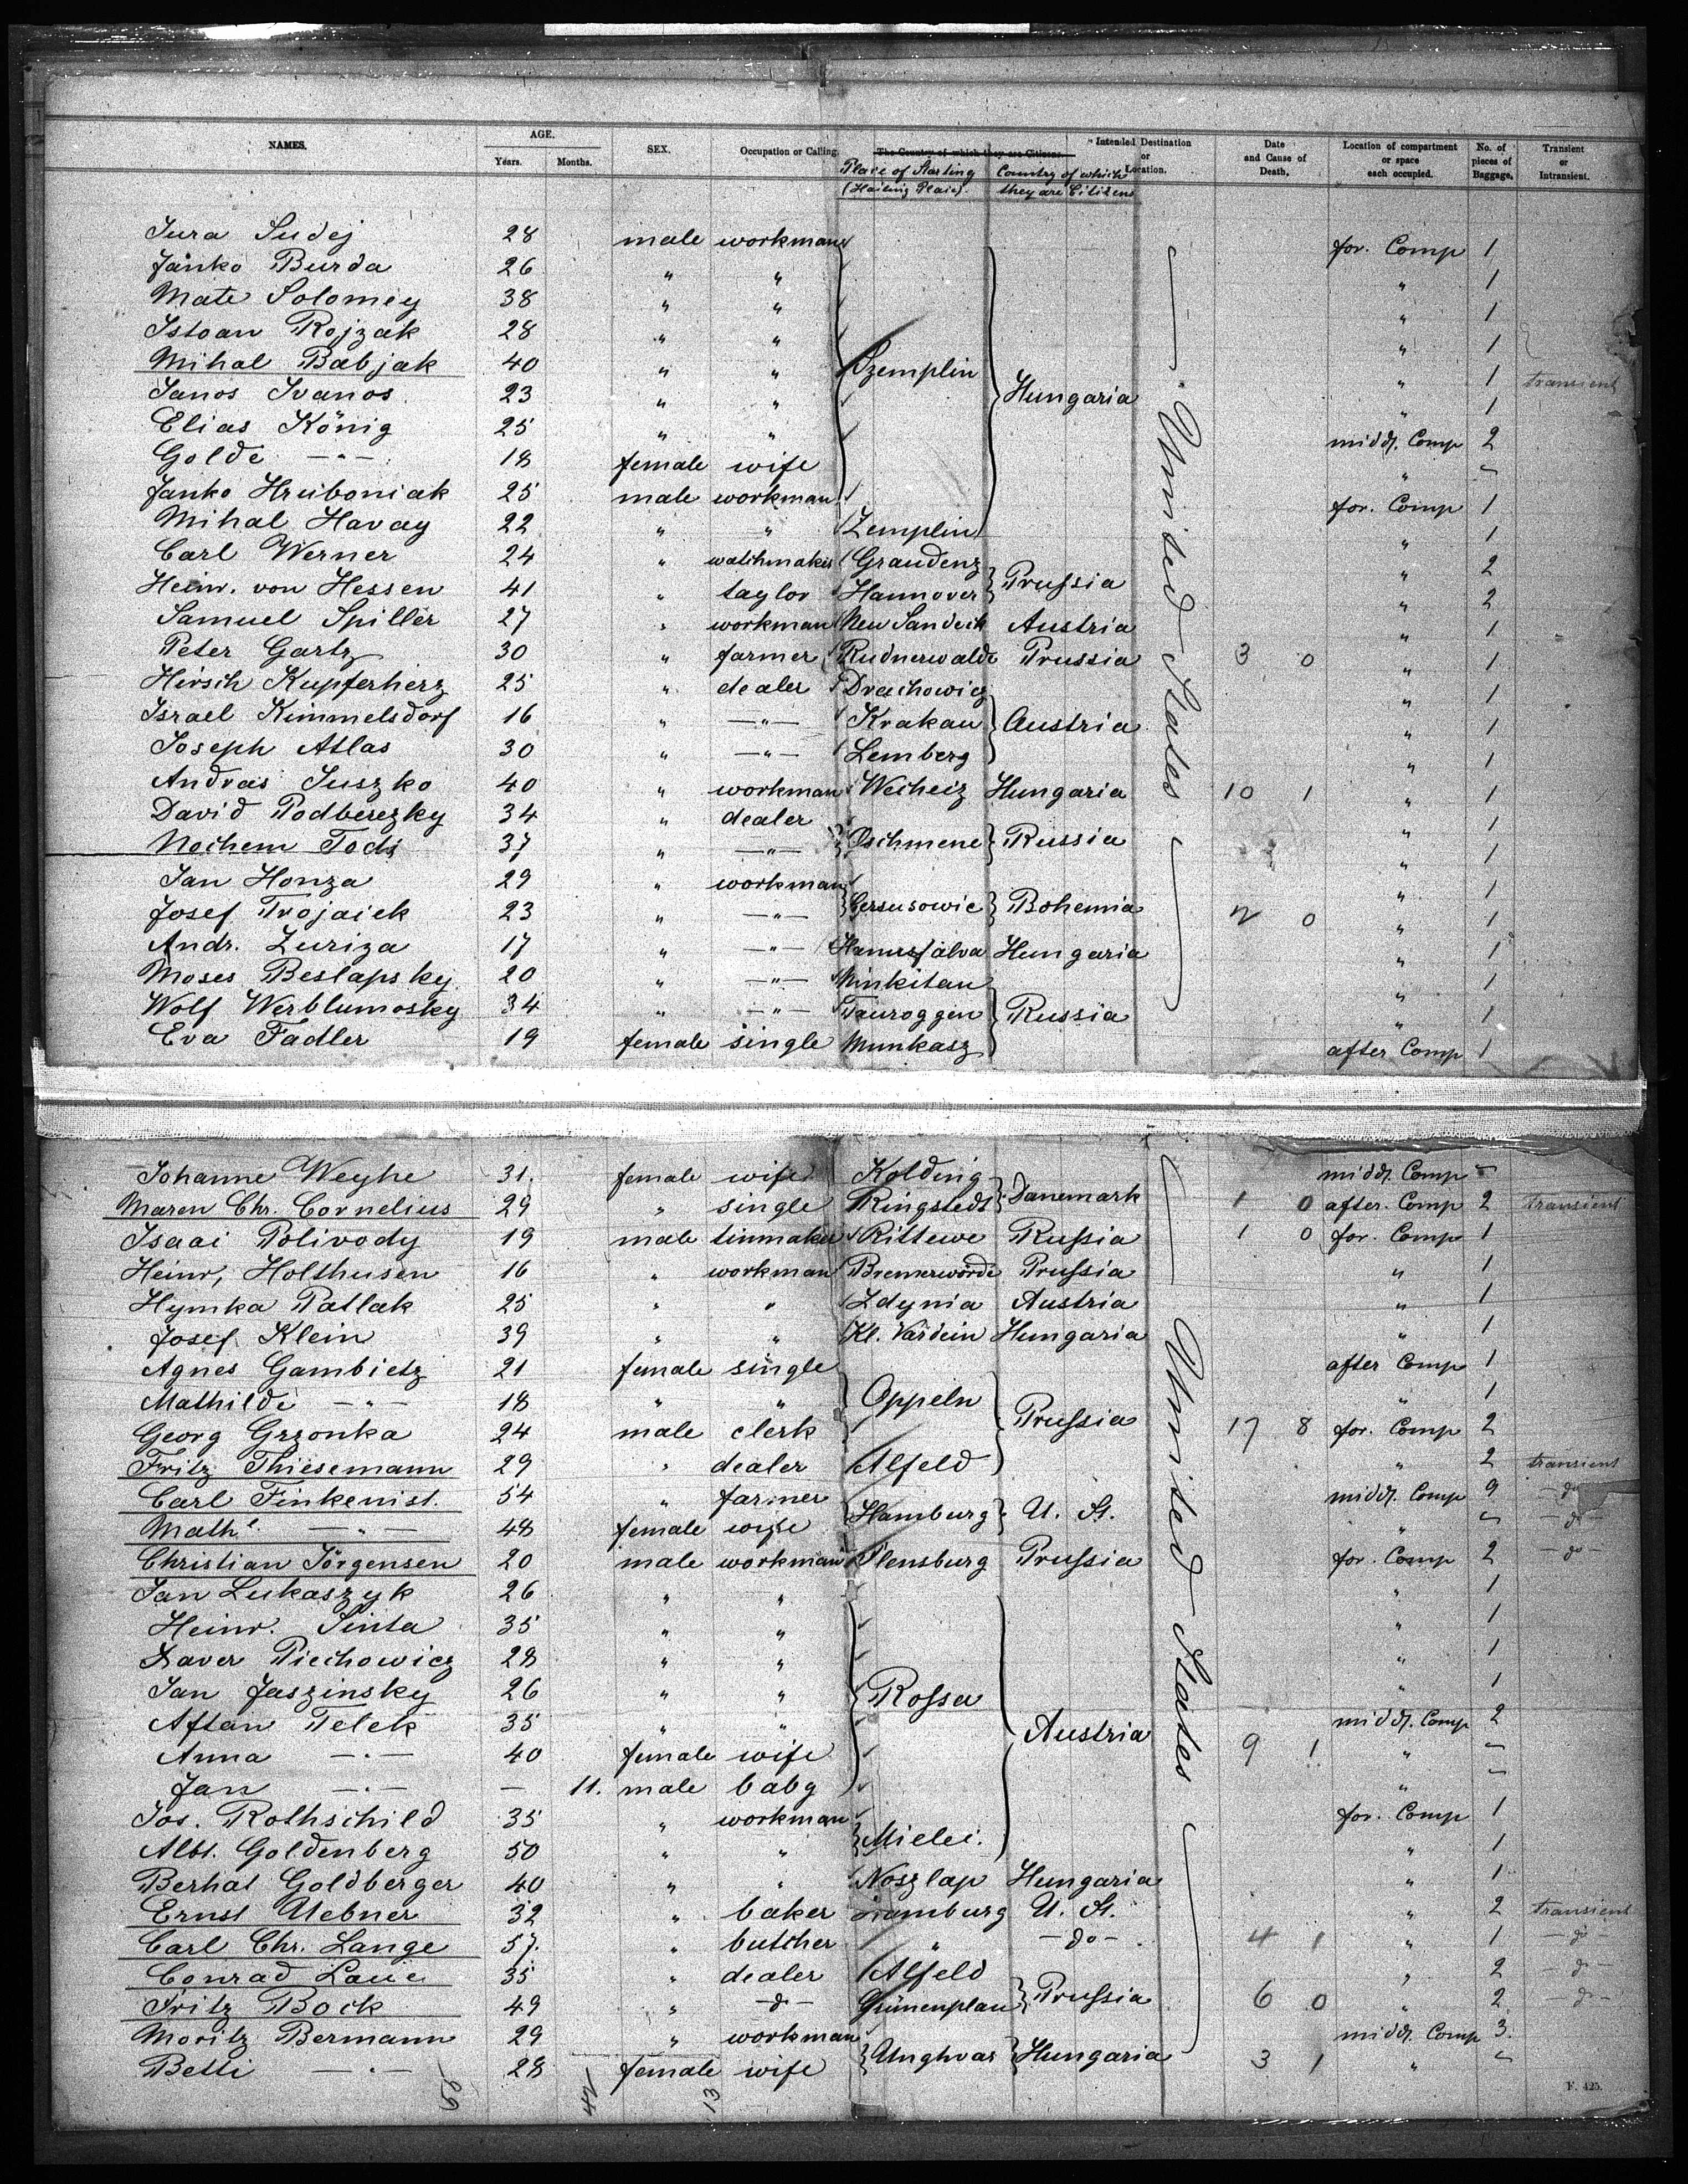 NAMES. AGE. Years. Months. SEX. Occupation or Calling. The Country of which they are Citizens. Intended Destination or Location. Date and Cause of Death. Location of compartment or space each occupied. No. of pieces of Baggage. Transient or Intransient.
Place of Starting (Hailing Place). Country of which they are Citizens
Jura Sudej 28 male workman for. Comp 1
Janko Burda 26 " " " 1
Mate Solomey 38 " " " 1
Istoan Rojzak 28 " " " 1
Mihal Babjak 40 " " Szemplin " 1 transient
Janos Ivanos 23 " " Hungaria " 1
Elias König 25 " " midd. Comp 2
Golde -"- 18 female wife " "
Janko Hruboniak 25 male workman for. Comp 1
Mihal Havay 22 " " Zemplin " 1
Carl Werner 24 " watchmaker Graudenz " 2
Heinr. von Hessen 41 " taylor Hannover Prussia " 2
Samuel Spiller 27 " workman Neu Sandech Austria " 1
Peter Gartz 30 " farmer Rudnerwalde Prussia 3 0 " 1
Hirsch Kupferherz 25 " dealer Drachowicz " 1
Israel Kimmelsdorf 16 " -"- Krakau Austria " 1
Joseph Atlas 30 " -"- Lemberg " 1
Andras Juszko 40 " workman Weiheiz Hungaria 10 1 " 1
David Podberezky 34 " dealer " 1
Nochem Tods 37 " -"- Oschmene Russia " 1
Jan Honza 29 " workman " 1
Josef Trojaiek 23 " -"- Gersusowic Bohemia 2 0 " 1
Andr. Zuriza 17 " -"- Hanusfalva Hungaria " 1
Moses Beslapsky 20 " -"- Minkitan " 1
Wolf Werblumosky 34 " -"- Tauroggen Russia " 1
Eva Fadler 19 female single Munkasz after Comp 1
United States
Johanne Weyhe 31. female wife Kolding midd. Comp "
Maren Chr. Cornelius 29 " single Ringstedt Danemark 1 0 after. Comp 2 transient
Isaai Polivody 19 male tinmaker Rittewe Russia 1 0 for. Comp 1
Heinr, Holthusen 16 " workman Bremerwörde Prussia " 1
Hymka Patlak 25 " " Zdynia Austria " 1
Josef Klein 39 " " Kl. Vardein Hungaria " 1
Agnes Gambietz 21 female single after Comp 1
Mathilde -"- 18 " " Oppeln " 1
Georg Grzonka 24 male clerk Prussia 17 8 for. Comp 2
Fritz Thiesemann 29 " dealer Alfeld " 2 transient
Carl Finkenist. 54 " farmer midd. Comp 9 -do-
Mathe. -"- 48 female wife Hamburg U. St. " " -do-
Christian Jörgensen 20 male workman Flensburg Prussia for. Comp 2 -do-
Jan Lukaszyk 26 " " " 1
Heinr. Sinta 35 " " " 1
Xaver Piechowicz 28 " " " 1
Jan Jaszinsky 26 " " Rossa " 1
Aftan Telek 35 " " Austria midd. Comp 2
Anna -"- 40 female wife 9 1 " "
Jan -"- - 11. male baby " "
Jos. Rothschild 35 " workman for. Comp 1
Albt. Goldenberg 50 " " Mielei. " 1
Berhat Goldberger 40 " " Noszlap Hungaria " 1
Ernst Uebner 32 " baker Hamburg U. St. " 2 transient
Carl Chr. Lange 57. " butcher " -do- 4 1 " 1 -do-
Conrad Laue 35 " dealer Alfeld " 2 -do-
Fritz Bock 49 " -do- Grünenplan Prussia 6 0 " 2 -do-
Moritz Bermann 29 " workman midd. Comp 3.
Betti -"- 28 female wife Unghvar Hungaria 3 1 " "
United States
13
F. 425.